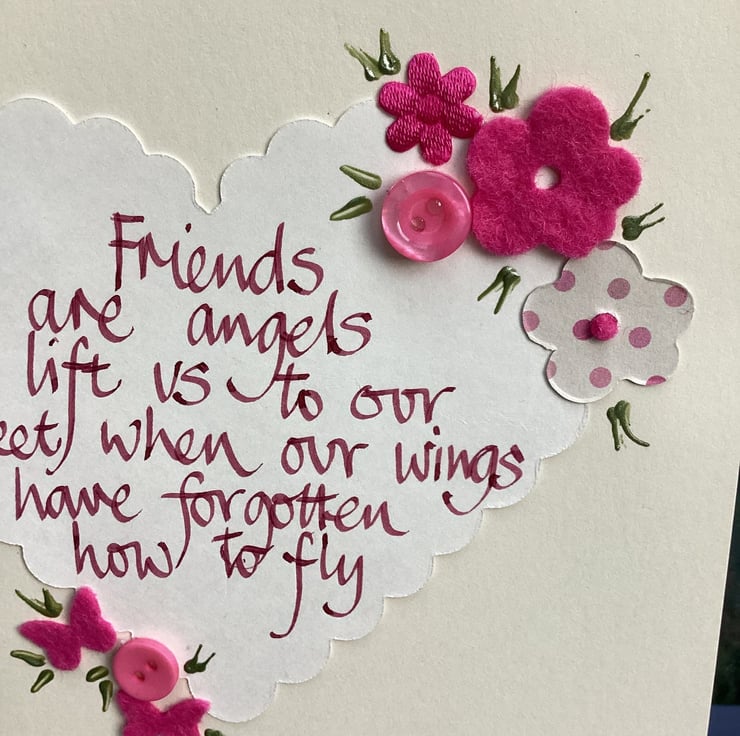 Friends
are angels
lift us to our
eet when our wings
have forgotten
how to fly